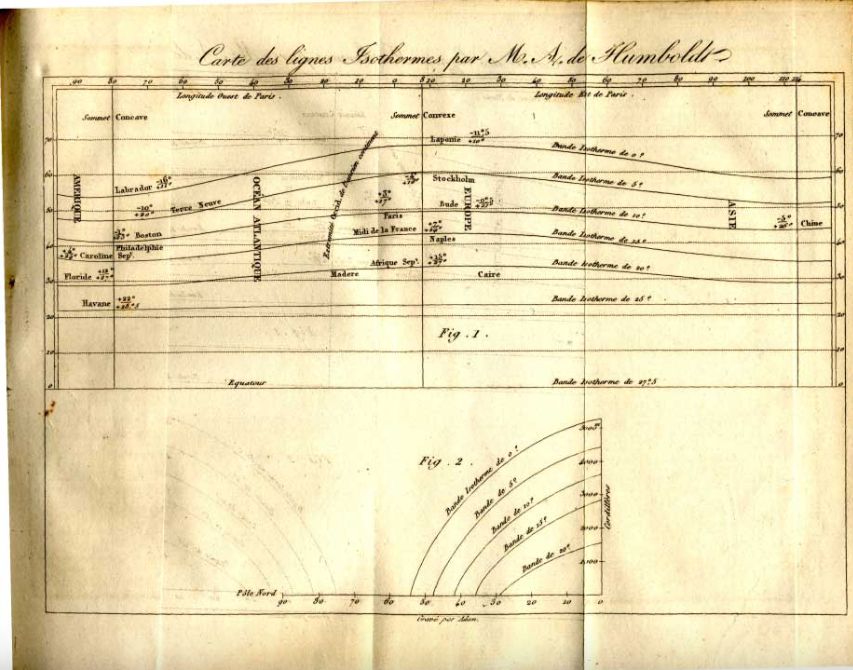 Carte des lignes Isothermes par M. A. de Humboldt
90 80 70 60 50 40 30 20 10 0 10 20 30 40 50 60 70 80 90 100 110
Longitude Ouest de Paris. Longitude Est de Paris.
Sommet Concave Sommet Convexe Sommet Concave
70 70
Laponie
Bande Isotherme de 0°
60 60
AMERIQUE
Labrador
OCEAN ATLANTIQUE
Extremité Occid. de l'ancien continent
Stockholm
EUROPE
Bande Isotherme de 5°
50 50
Terre Neuve
Bude
ASIE
Paris
Bande Isotherme de 10°
Chine
Boston
Midi de la France
40 40
Philadelphie
Naples
Bande Isotherme de 15°
Caroline Sepᵗ.
Afrique Sepᵗ.
Floride
Madere
Caire
Bande Isotherme de 20°
30 30
Havane
+22°
Bande Isotherme de 25°
20 20
Fig. 1.
10 10
Equateur
Bande Isotherme de 27°5
0 0
Fig. 2.
5000ᵐ
4000
3000
2000
1000
Cordillères
Bande Isotherme de 0°
Bande de 5°
Bande de 10°
Bande de 15°
Bande de 20°
Pôle Nord
90 80 70 60 50 40 30 20 10 0
Gravé par Adam.